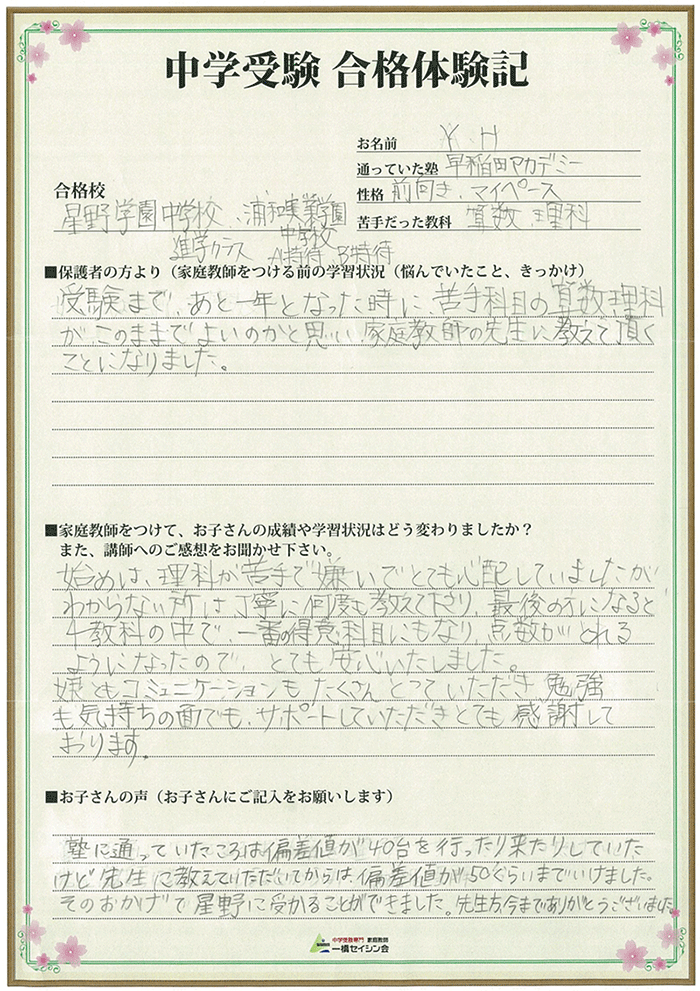 中学受験 合格体験記
お名前 Y H
通っていた塾 早稲田アカデミー
性格 前向き、マイペース
苦手だった教科 算数、理科
合格校
星野学園中学校、浦和実業学園
進学クラス 中学校
A特待、B特待
■保護者の方より（家庭教師をつける前の学習状況（悩んでいたこと、きっかけ）
受験まで、あと一年となった時に、苦手科目の算数、理科
が、このままでよいのかと思い、家庭教師の先生に教えて頂く
ことになりました。
■家庭教師をつけて、お子さんの成績や学習状況はどう変わりましたか？
また、講師へのご感想をお聞かせ下さい。
始めは、理科が苦手で嫌いでとても心配していましたが
わからない所は丁寧に何度も教えて下さり、最後の方になると
4教科の中で、一番の得意科目にもなり、点数がとれる
ようになったので、とても安心いたしました。
娘ともコミュニケーションもたくさんとっていただき、勉強
も気持ちの面でも、サポートしていただきとても感謝して
おります。
■お子さんの声（お子さんにご記入をお願いします）
塾に通っていたころは偏差値が40台を行ったり来たりしていた
けど先生に教えていただいてからは偏差値が50ぐらいまでいけました。
そのおかげで星野に受かることができました。先生方今までありがとうございました。
中学受験専門 家庭教師
一橋セイシン会